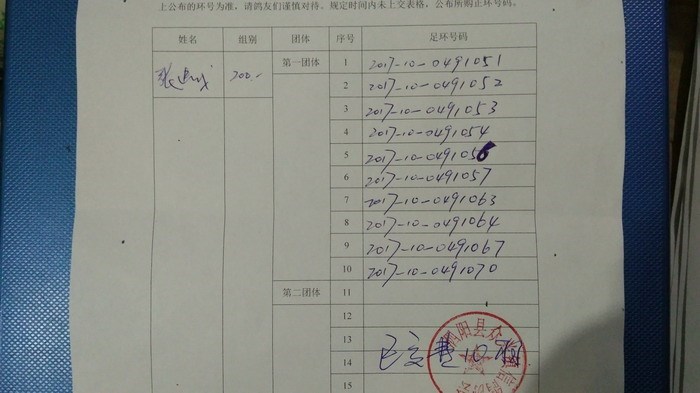 上公布的环号为准，请鸽友们谨慎对待。规定时间内未上交表格，公布所购正环号码。
姓名 组别 团体 序号 足环号码
200.- 第一团体 1 2017-10-0491051
2 2017-10-0491052
3 2017-10-0491053
4 2017-10-0491054
5 2017-10-0491056
6 2017-10-0491057
7 2017-10-0491063
8 2017-10-0491064
9 2017-10-0491067
10 2017-10-0491070
第二团体 11
12
13
已交费10
14
15
阳县众